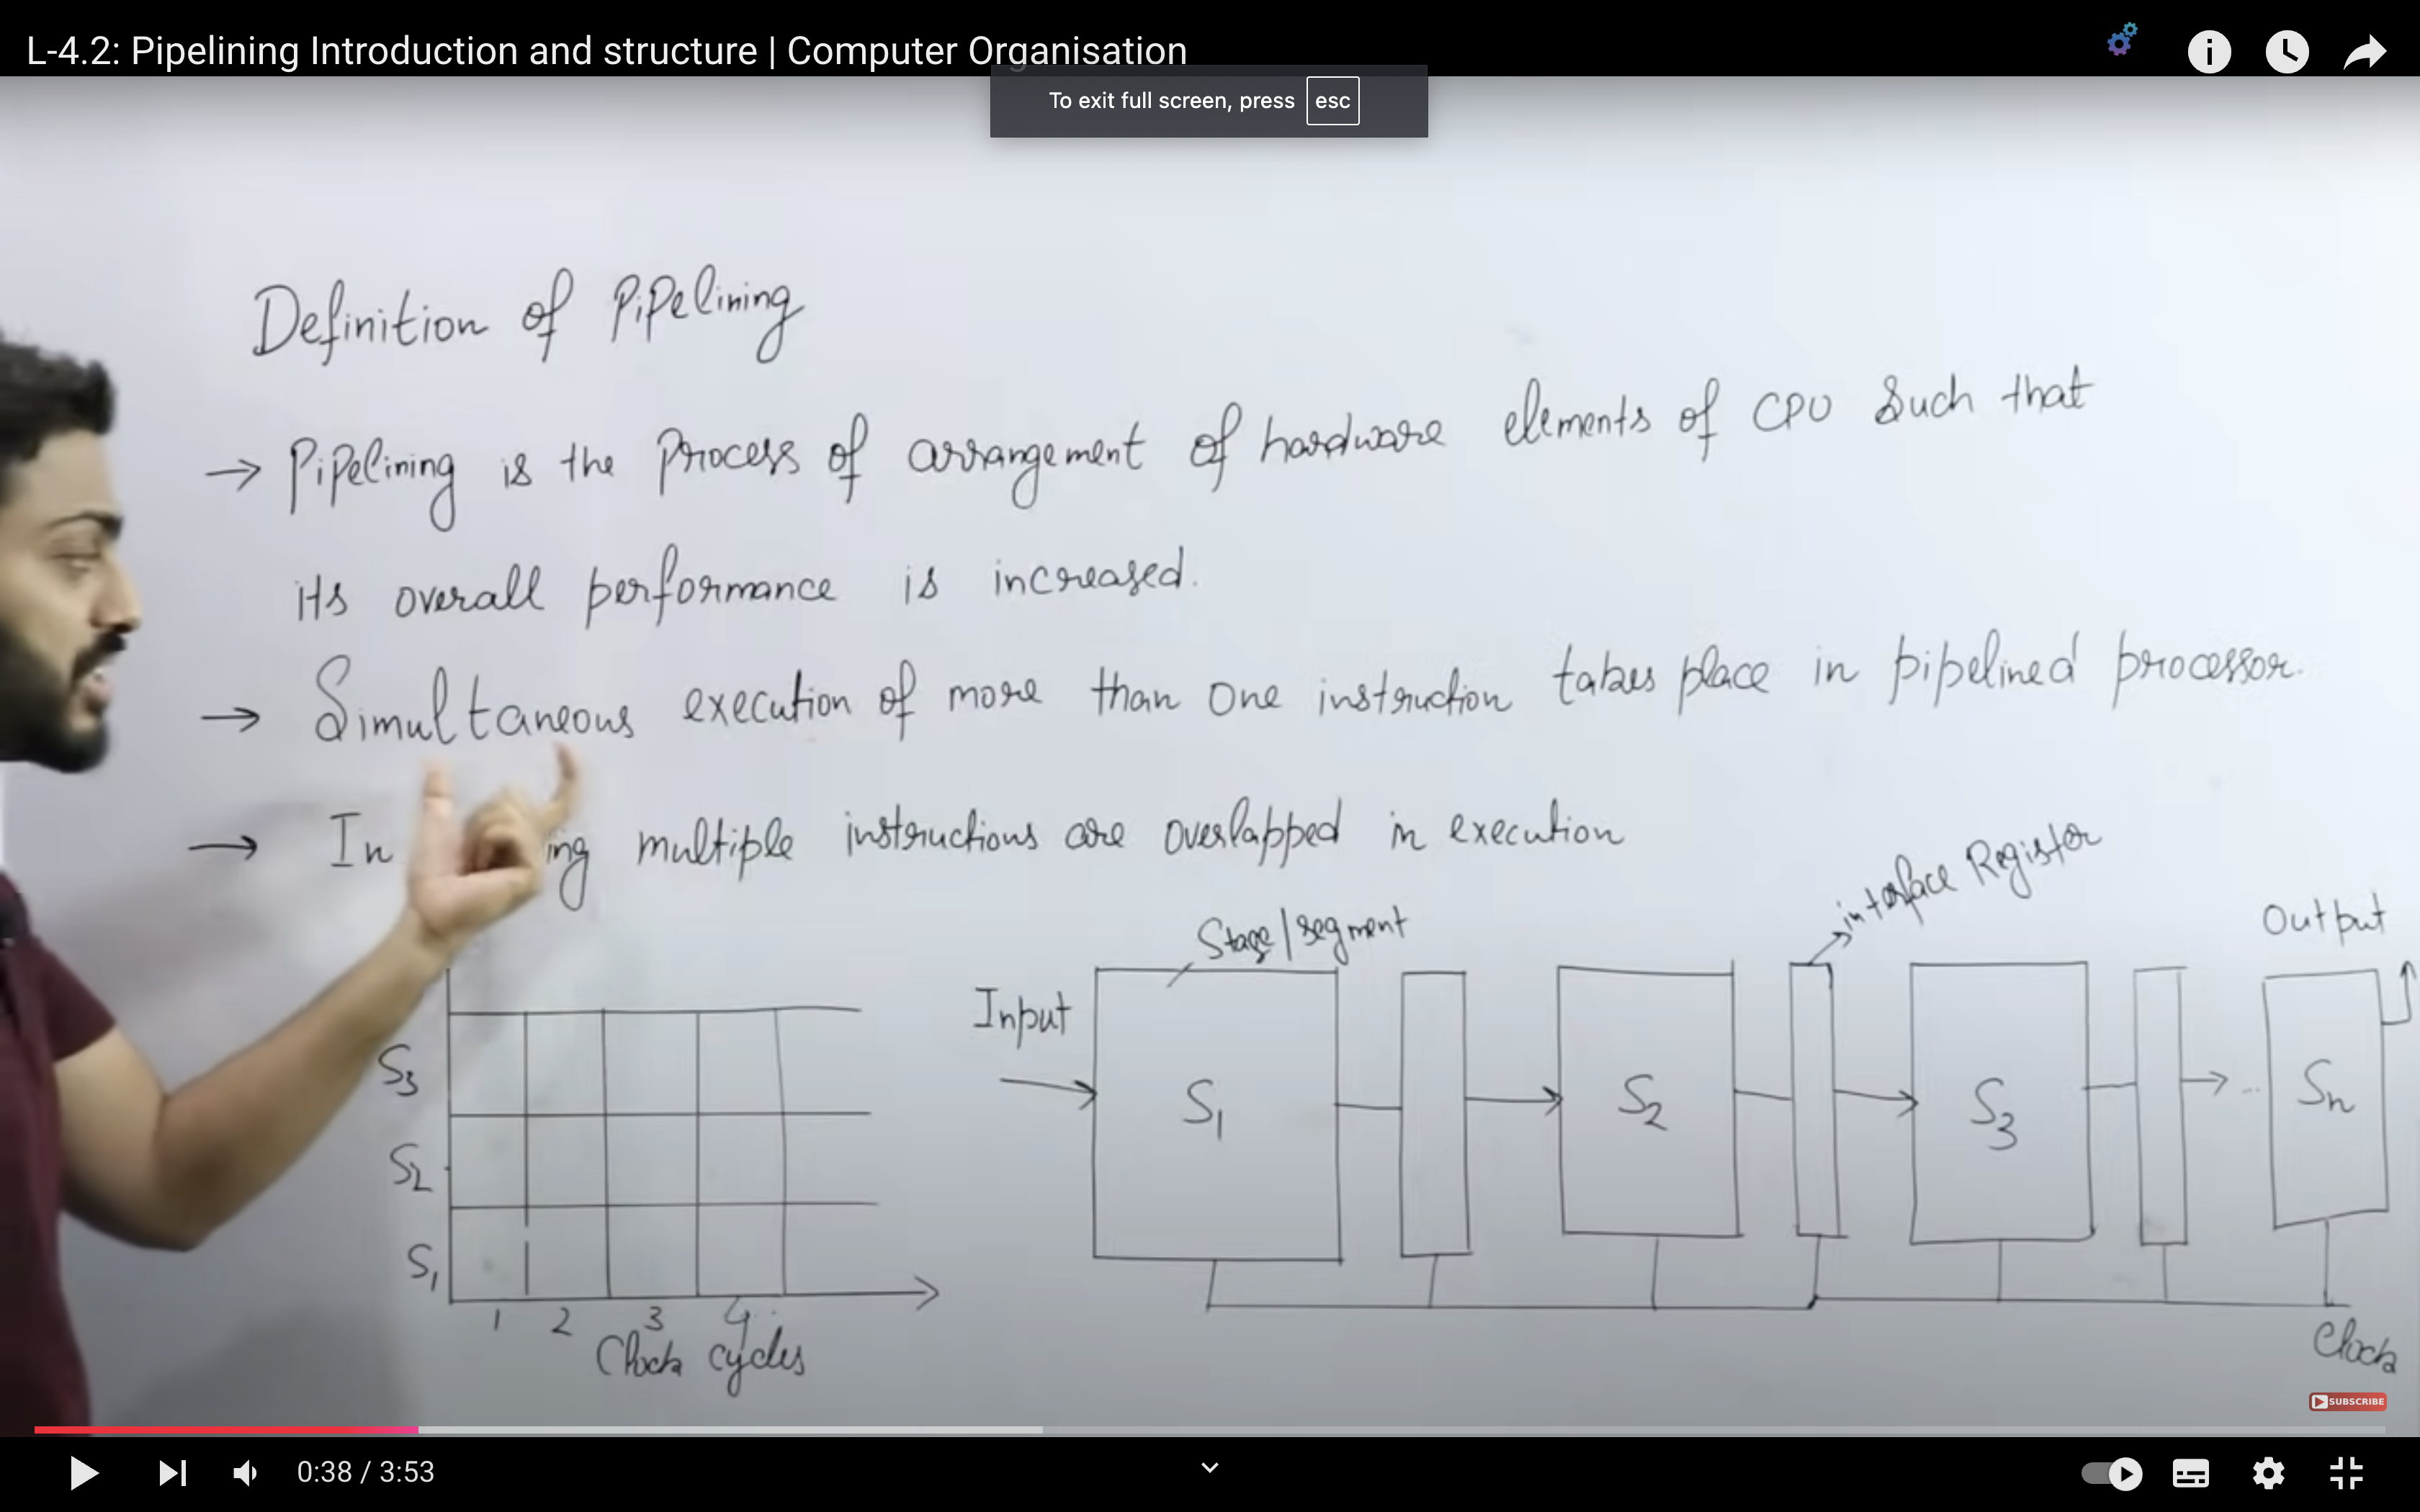 L-4.2: Pipelining Introduction and structure | Computer Organisation
To exit full screen, press esc
Definition of Pipelining
→ Pipelining is the Process of arrangement of hardware elements of CPU Such that
its overall performance is increased.
→ Simultaneous execution of more than one instruction takes place in pipelined processor.
→ In ing multiple instructions are overlapped in execution
Stage/segment
interface Register
Output
Input
S1
S2
S3
Sn
Clock
S3
S2
S1
1 2 3 4
Clock cycles
SUBSCRIBE
0:38 / 3:53